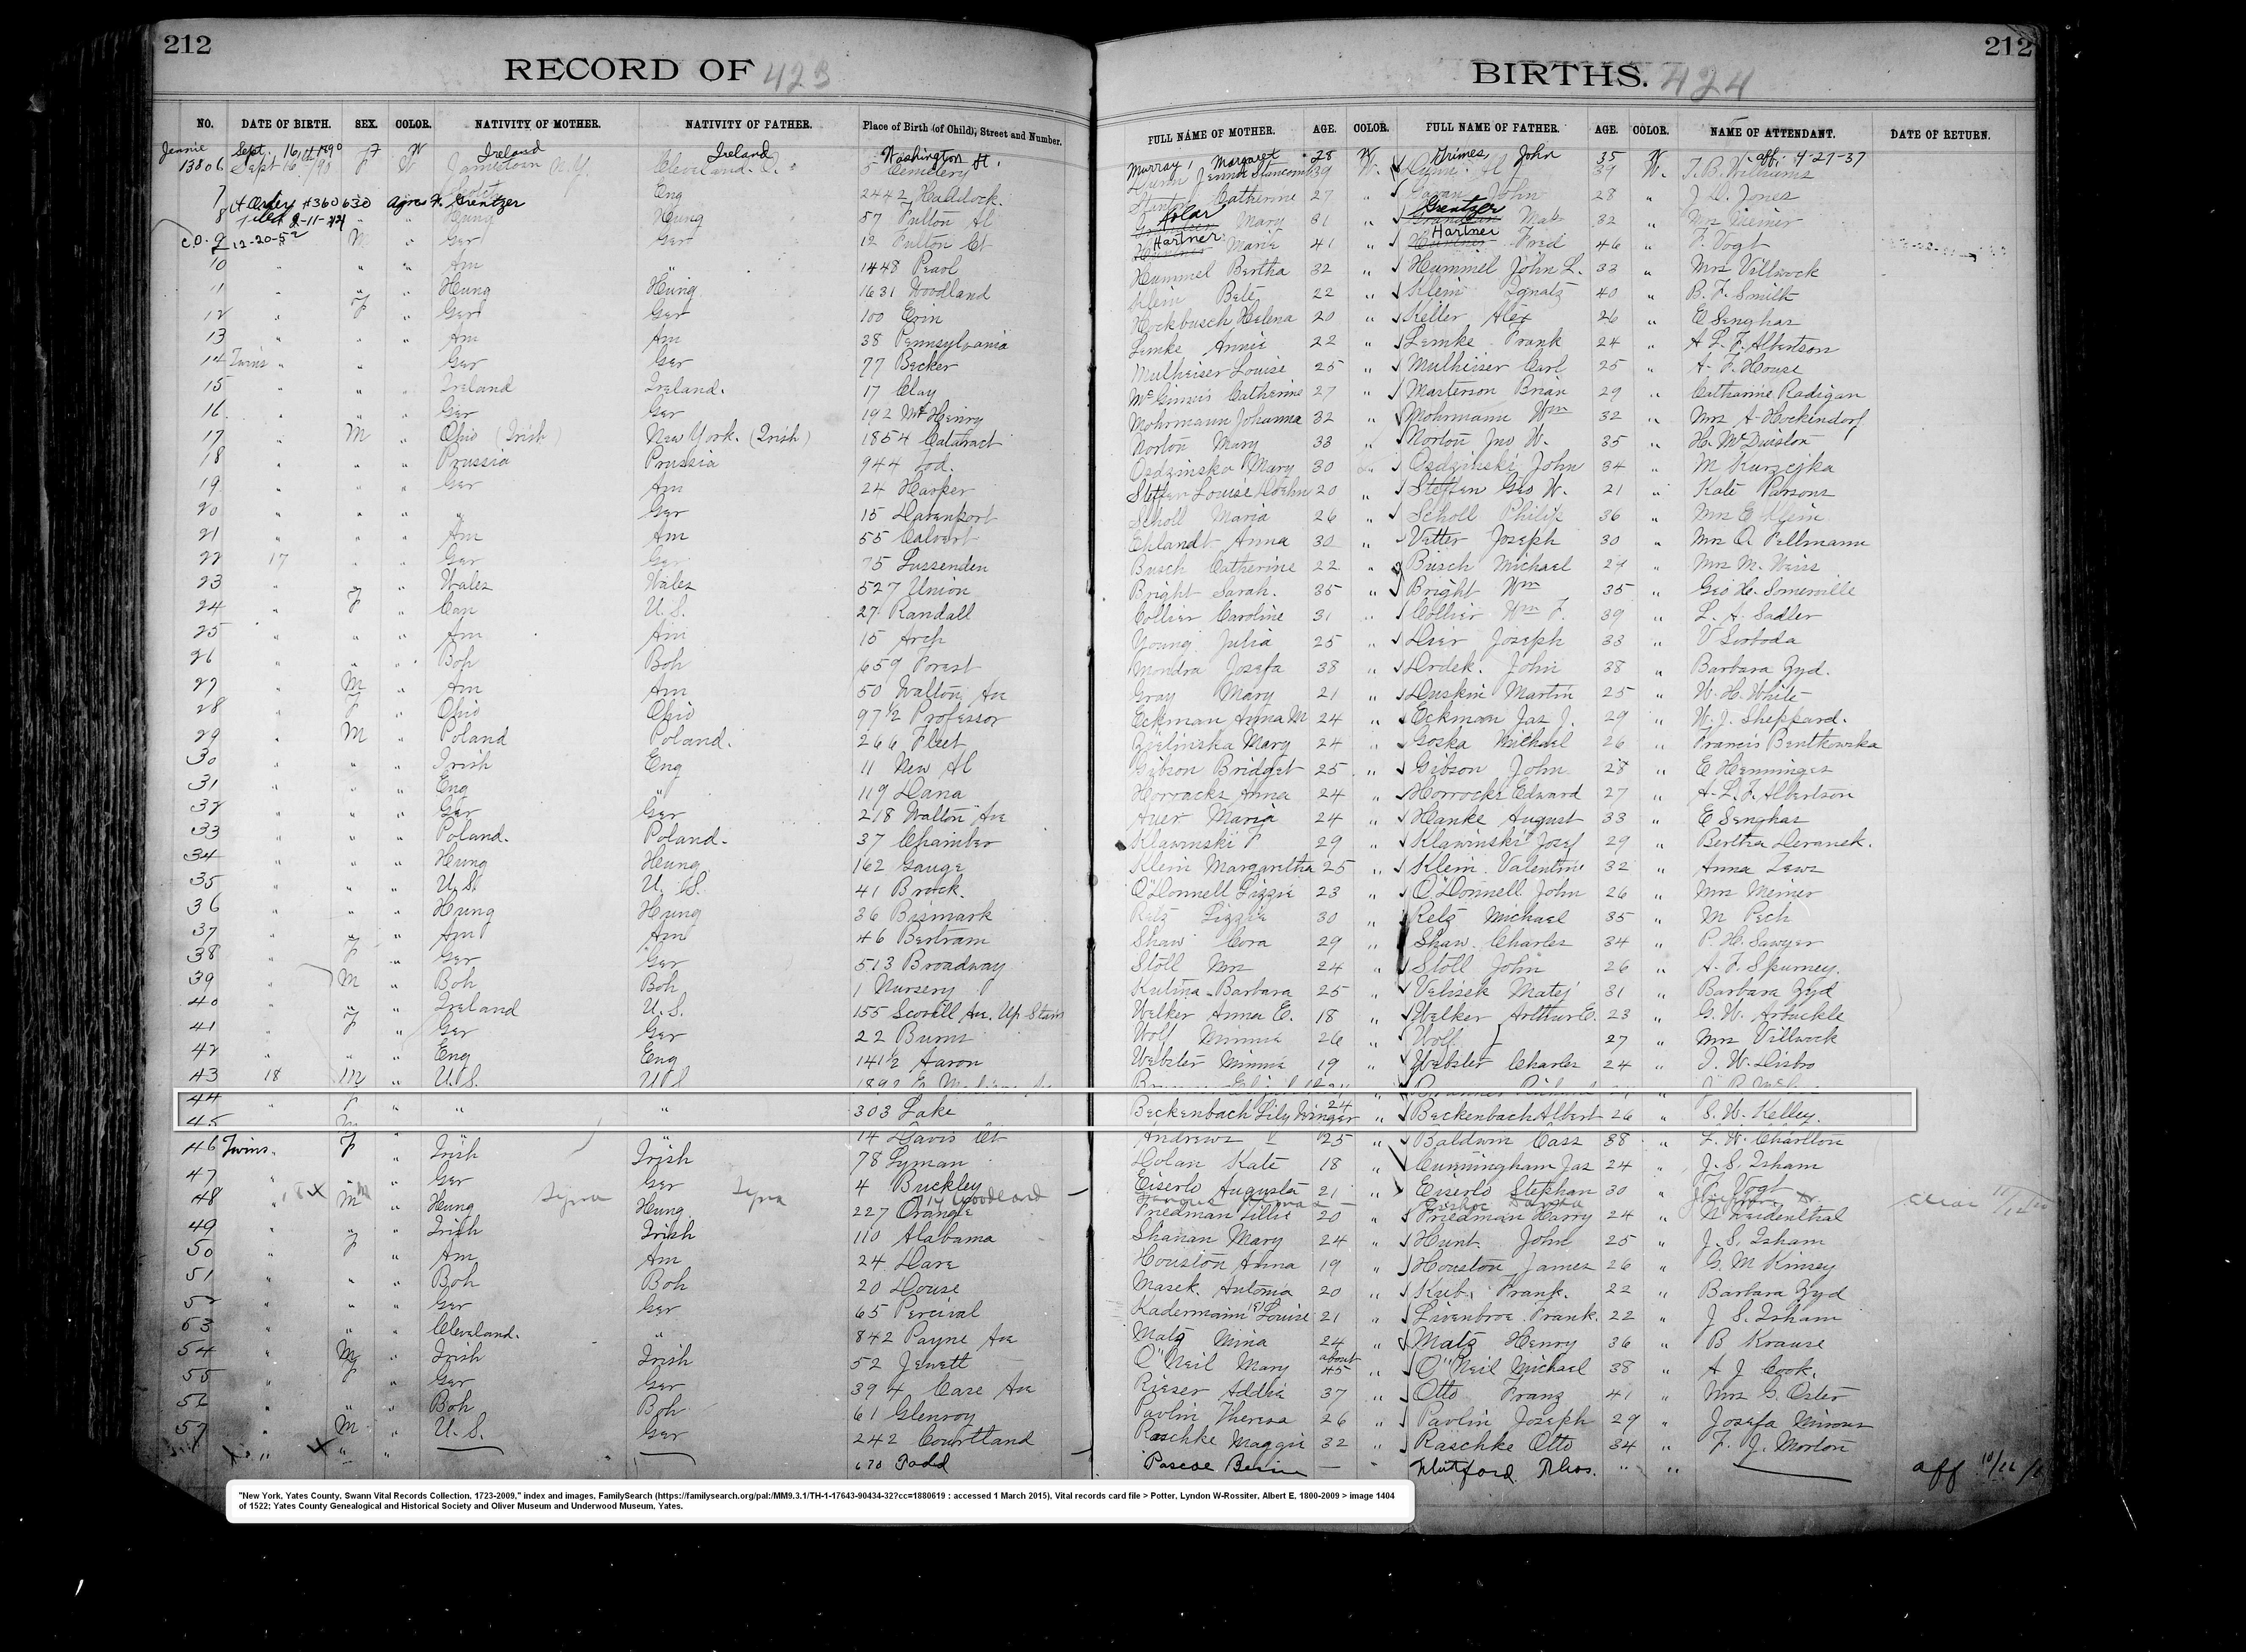 212
212
RECORD OF 423
BIRTHS. 424
NO. DATE OF BIRTH. SEX. COLOR. NATIVITY OF MOTHER. NATIVITY OF FATHER. Place of Birth (of Child), Street and Number. FULL NAME OF MOTHER. AGE. COLOR. FULL NAME OF FATHER. AGE. COLOR. NAME OF ATTENDANT. DATE OF RETURN.
Jennie Sept. 16, 1890 F W Ireland Ireland Washington St. Murray, Margaret 28 W Grimes, John 35 W aff. 4-27-37
13806 Sept 16/90 F W Jamestown N.Y. Cleveland. O. 5 Cemetery 39 W. 39 W. T. B. Williams
7 Eng 2442 Catherine 27 " John 28 " J. D. Jones
Ct Order #360630 Agnes Grentzer
8 filed 2-11-44 Hung Hung 57 Fulton Al Mary 31 " Grentzer 32 "
C.O. 9 12-20-52 M " Ger Ger 12 Fulton Ct Hartner Marie 41 " Hartner Fred 46 " F. Vogt
10 " " " Am " 1448 Pearl Hummel Bertha 32 " Hummel John L. 33 " Mrs Villwock
11 " " " Hung Hung 1631 Woodland Klein 22 " Klein Ignatz 40 " B. F. Smith
12 " F " Ger Ger 100 Erin Hockbusch Helena 20 " Keller Alex 26 " E Senghas
13 " " " Am Am 38 Pennsylvania Lemke Annie 22 " Lemke Frank 24 " A L. F. Albertson
14 Twins " " " Ger Ger 77 Becker Mulheiser Louise 25 " Mulheiser Carl 25 " A. F. House
15 " " " Ireland Ireland. 17 Clay McGinnis Catherine 27 " Masterson Brian 29 " Catharine Radigan
16 " " " Ger Ger 192 McHenry Mohrmann Johanna 32 " Mohrmann Wm 32 " Mrs A Hockindorf
17 " M " Ohio (Irish) New York. (Irish) 1854 Cataract Norton Mary 33 " Norton Jno W. 35 "
18 " " " Prussia Prussia 944 Tod. Osdzinska Mary 30 " Osdzinski John 34 " M Kurzejka
19 " " " Ger Am 24 Harper Steffen Louise 20 " Steffen Geo W. 21 " Kate Parsons
20 " " " " Ger 15 Davenport Scholl Maria 26 " Scholl Philip 36 " Mrs E Klein
21 " " " Am Am 55 Calvert Anna 30 " Vetter Joseph 30 " Mrs A. Pellmann
22 17 " " Ger Ger 75 Lussenden Busch Catherine 22 " Busch Michael 24 " Mrs M. Weiss
23 " " " Wales Wales 527 Union Bright Sarah. 35 " Bright Wm 35 " Geo H. Somerville
24 " F " Can U.S. 27 Randall Collier Caroline 31 " Collier Wm F. 39 " L. A. Sadler
25 " " " Am Am 15 Arch Young Julia 25 " Joseph 33 " V Svoboda
26 " " " Boh Boh 659 Forest Mondra Josefa 38 " Drdek. John 38 " Barbara Zyd.
27 " M " Am Am 50 Walton Av Gray Mary 21 " Duskin Martin 25 " W. H. White
28 " F " Ohio Ohio 97½ Professor Eckman Anna M 24 " Eckman Jas J. 29 " W. J. Sheppard.
29 " M " Poland Poland. 266 Fleet Zielinska Mary 24 " Goska Michael 26 " Francis Bentkowska
30 " " " Irish Eng 11 New Al Gibson Bridget 25 " Gibson John 28 " E Henninges
31 " " " Eng " 119 Dana Horrocks Anna 24 " Horrocks Edward 27 " A. L. F. Albertson
32 " " " Ger Ger 218 Walton Ave Auer Maria 24 " Hanke August 33 " E Senghas
33 " " " Poland. Poland. 37 Chamber Klawinski F 29 " Klawinski Josef 29 " Bertha Deranek.
34 " " " Hung Hung 162 Gauge Klein Margaretha 25 " Klein Valentine 32 " Anna
35 " " " U.S. U.S. 41 Brock. O'Donnell Lizzie 23 " O'Donnell John 26 " Mrs Meiner
36 " " " Hung Hung 36 Bismark Retz Lizzie 30 " Retz Michael 35 " M Pech
37 " " " Am Am 46 Bertram Shaw Cora 29 " Shaw. Charles 34 " P. H. Sawyer
38 " F " Ger Ger 513 Broadway Stoll Mrs 24 " Stoll John 26 " A. F. Spurney.
39 " M " Boh Boh 1 Nursery Kulina Barbara 25 " Velisek Matej 31 " Barbara Zyd
40 " " " Ireland U.S. 155 Scovill Av. Up Stairs Welker Anna E. 18 " Welker Arthur E. 23 " G. W. Arbuckle
41 " F " Ger Ger 22 Burns Wolf Minnie 26 " Wolf 27 " Mrs Villwock
42 " " " Eng Eng 141½ Aaron Webster Minnie 19 " Webster Charles 24 " J. W. Disbro
43 18 M " U.S. U.S.
44 " F " " " 303 Lake Beckenbach Lily Winger 24 " Beckenbach Albert 26 " S. W. Kelley.
45 M 14 Davis Ct Andrews 25 " Baldwin Cass 38 " L. W. Charlton
46 Twins. F " Irish Irish 78 Lyman Dolan Kate 18 " Cunningham Jas 24 " J. S. Isham
47 " " " Ger Ger 4 Buckley Eiserlo Augusta 21 " Eiserlo Stephan 30 " F. Vogt
48 " M " Hung Syria Hung Syria 227 Orange Woodland Friedman Lillie 20 " Friedman Harry 24 " N Weidenthal
49 " " " Irish Irish 110 Alabama Shanan Mary 24 " Hunt. John 25 " J. S. Isham
50 " F " Am Am 24 Dare Houston Anna 19 " Houston James 26 " G. M Kinsey
51 " " " Boh Boh 20 Douse Masek. Antonia 20 " Kub. Frank. 22 " Barbara Zyd
52 " " " Ger Ger 65 Percival Kadermann Louise 21 " Livenbroe Frank. 22 " J S. Isham
53 " " " Cleveland. " 842 Payne Ave Matz Mina 24 " Matz Henry 36 " B Krause
54 " M " Irish Irish 52 Jewett O'Neil Mary about 45 " O'Neil Michael 38 " A J Cook.
55 " F " Ger Ger 394 Case Av Rieser Addie 37 " Otto Franz 41 " Mrs G. Oster
56 " " " Boh Boh 61 Glenroy Pavlin Theresa 26 " Pavlin Joseph 29 " Josefa
57 " M " U.S. Ger 242 Courtland Raschke Maggie 32 " Raschke Otto 34 " F. J. Morton
670 Todd Pascoe — " Thos. " " aff
"New York, Yates County, Swann Vital Records Collection, 1723-2009," index and images, FamilySearch (https://familysearch.org/pal:/MM9.3.1/TH-1-17643-90434-32?cc=1880619 : accessed 1 March 2015), Vital records card file > Potter, Lyndon W-Rossiter, Albert E, 1800-2009 > image 1404
of 1522; Yates County Genealogical and Historical Society and Oliver Museum and Underwood Museum, Yates.